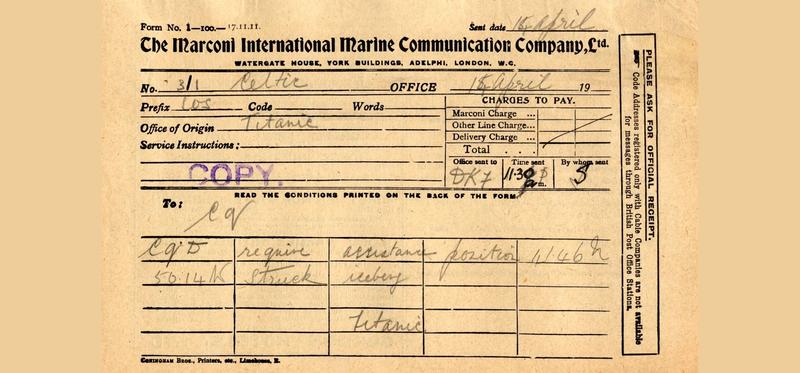 Form No. 1—100.—17.11.11. Sent date 15 April
The Marconi International Marine Communication Company, Ltd.
WATERGATE HOUSE, YORK BUILDINGS, ADELPHI, LONDON, W.C.
No. 3/1 Celtic OFFICE 15 April 19
Prefix Code Words
CHARGES TO PAY.
Marconi Charge ...
Office of Origin Titanic
Other Line Charge...
Delivery Charge ...
Service Instructions:
Total . . .
Office sent to Time sent By whom sent
COPY.
11.30 m. S
READ THE CONDITIONS PRINTED ON THE BACK OF THE FORM.
To: Cq
CqD require assistance position 41.46 N
50.14 W Struck iceberg
Titanic
CONINGHAM BROS., Printers, etc., Limehouse, E.
PLEASE ASK FOR OFFICIAL RECEIPT.
Code Addresses registered only with Cable Companies are not available
for messages through British Post Office Stations.